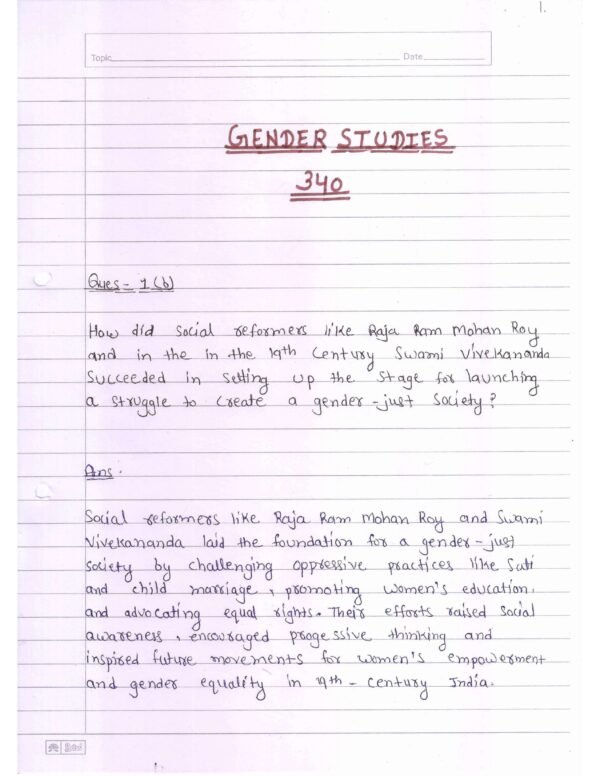 1.
Topic Date
GENDER STUDIES
340
Ques - 1(b)
How did social reformers like Raja Ram Mohan Roy
and in the in the 19th Century Swami Vivekananda
Succeeded in setting up the stage for launching
a struggle to create a gender-just society?
Ans.
Social reformers like Raja Ram Mohan Roy and Swami
Vivekananda laid the foundation for a gender-just
society by challenging oppressive practices like Sati
and child marriage, promoting women's education,
and advocating equal rights. Their efforts raised social
awareness, encouraged progessive thinking and
inspired future movements for women's empowerment
and gender equality in 19th-century India.